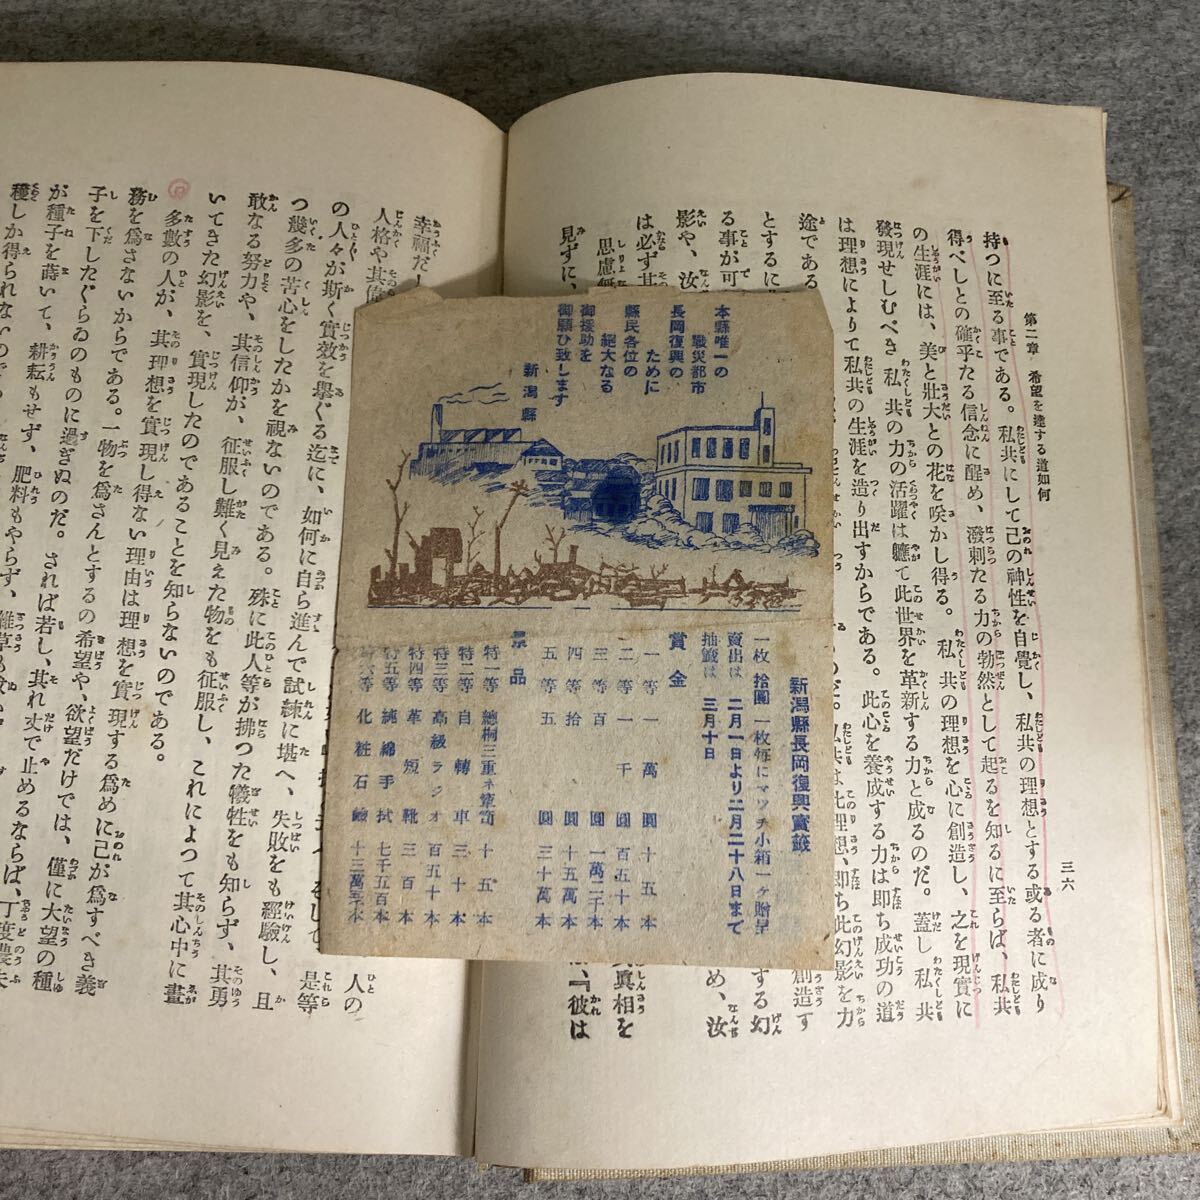 第二章 希望を達する道如何
三六
持つに至る事である。私共にして己の神性を自覺し、私共の理想とする或る者に成り
得べしとの確乎たる信念に醒め、潑剌たる力の勃然として起るを知るに至らば、私共
の生涯には、美と壯大との花を咲かし得る。私共の理想を心に創造し、之を現實に
發現せしむべき私共の力の活躍は軈て此世界を革新する力と成るのだ。蓋し私共
は理想によりて私共の生涯を造り出すからである。此心を養成する力は即ち成功の道
途である
私共は此理想、即ち此幻影を力
とするに
創造す
る事が可
する幻
影や、汝
め、汝
は必ず其
眞相を
思慮無
見ずに、
は、『彼は
本縣唯一の
戰災都市
長岡復興の
ために
縣民各位の
絕大なる
御援助を
御願ひ致します
新潟縣
新潟縣長岡復興寶籤
一枚 拾圓 一枚每にマッチ小箱一ヶ贈呈
賣出は 二月一日より二月二十八日まで
抽籤は 三月十日
賞金
一等 一萬圓 十五本
二等 一千圓 百五十本
三等 百圓 一萬二千本
四等 拾圓 十五萬本
五等 五圓 三十萬本
景品
特一等 總桐三重ネ簞笥 十五本
特二等 自轉車 三十本
特三等 高級ラジオ 百五十本
特四等 革短靴 三百本
特五等 純綿手拭 七千五百本
特六等 化粧石鹼
幸福だ
人格や其偉
人の
の人々が斯く實效を擧ぐる迄に、如何に自ら進んで試練に堪へ、失敗をも經驗し、且
つ幾多の苦心をしたかを視ないのである。殊に此人等が拂つた犧牲をも知らず、其勇
敢なる努力や、其信仰が、征服し難く見えた物をも征服し、これによつて其心中に畫
いてきた幻影を、實現したのであることを知らないのである。
多數の人が、其理想を實現し得ない理由は理想を實現する爲めに己が爲すべき義
務を爲さないからである。一物を爲さんとするの希望や、欲望だけでは、僅に大望の種
子を下したぐらゐのものに過ぎぬのだ。されば若し、其れ丈で止めるならば、丁度農夫
が種子を蒔いて、耕耘もせず、肥料もやらず、雜草も
種しか得られないので